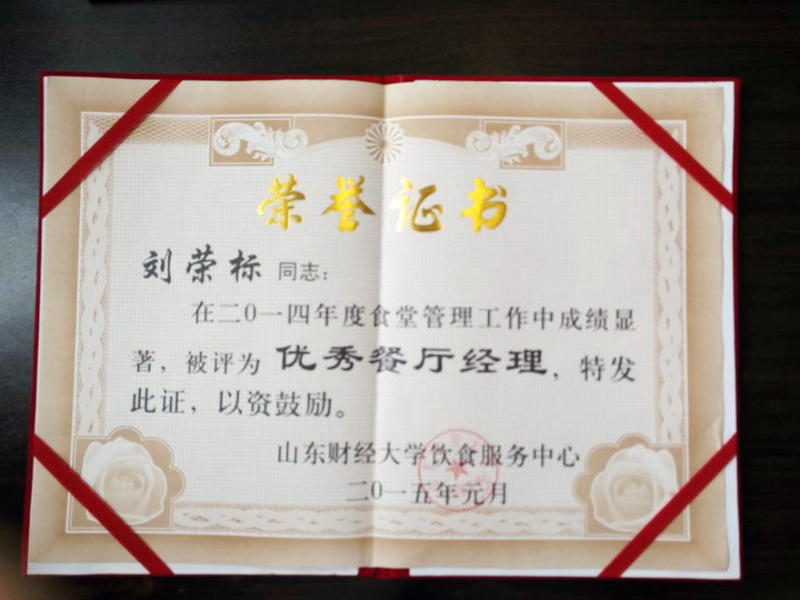 荣誉证书
刘荣标 同志：
在二0一四年度食堂管理工作中成绩显
著，被评为 优秀餐厅经理，特发
此证，以资鼓励。
山东财经大学饮食服务中心
二0一五年元月